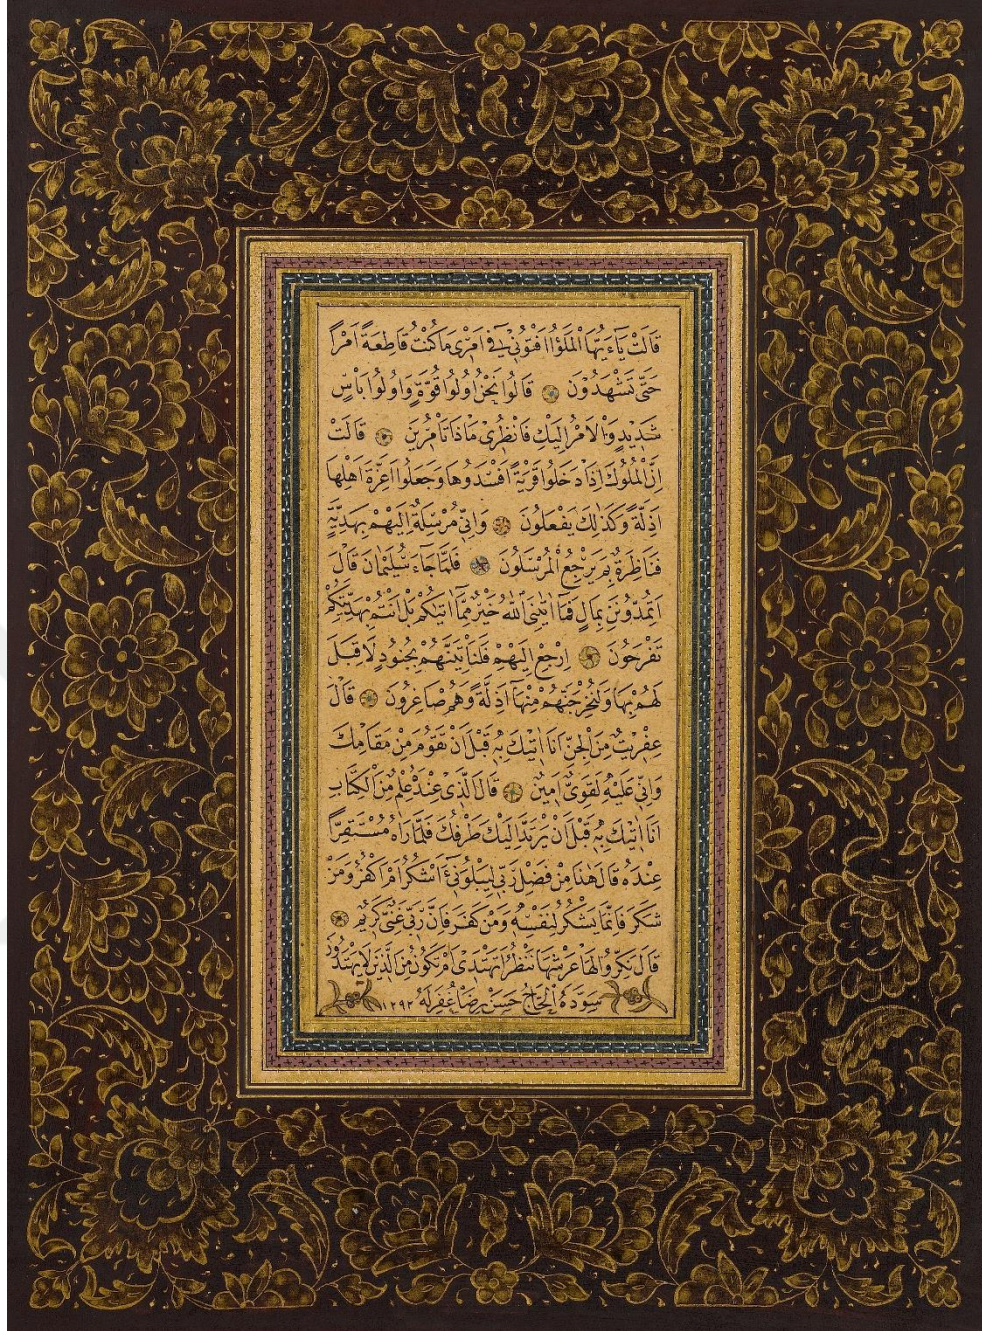 قَالَتْ يَاءَيُّهَا الْمَلَؤُا اَفْتُونِى فِى اَمْرِى مَا كُنْتُ قَاطِعَةً اَمْرًا
حَتّٰى تَشْهَدُونِ قَالُوا نَحْنُ اُولُوا قُوَّةٍ وَاُولُوا بَاْسٍ
شَدِيدٍ وَالْاَمْرُ اِلَيْكِ فَانْظُرِى مَاذَا تَاْمُرِينَ قَالَتْ
اِنَّ الْمُلُوكَ اِذَا دَخَلُوا قَرْيَةً اَفْسَدُوهَا وَجَعَلُوا اَعِزَّةَ اَهْلِهَا
اَذِلَّةً وَكَذٰلِكَ يَفْعَلُونَ وَاِنِّى مُرْسِلَةٌ اِلَيْهِمْ بِهَدِيَّةٍ
فَنَاظِرَةٌ بِمَ يَرْجِعُ الْمُرْسَلُونَ فَلَمَّا جَاءَ سُلَيْمٰانَ قَالَ
اَتُمِدُّونَنِ بِمَالٍ فَمَا اٰتٰينِىَ اللهُ خَيْرٌ مِمَّا اٰتٰيكُمْ بَلْ اَنْتُمْ بِهَدِيَّتِكُمْ
تَفْرَحُونَ اِرْجِعْ اِلَيْهِمْ فَلَنَاْتِيَنَّهُمْ بِجُنُودٍ لَا قِبَلَ
لَهُمْ بِهَا وَلَنُخْرِجَنَّهُمْ مِنْهَا اَذِلَّةً وَهُمْ صَاغِرُونَ قَالَ
عِفْرِيتٌ مِنَ الْجِنِّ اَنَا اٰتِيكَ بِهٖ قَبْلَ اَنْ تَقُومَ مِنْ مَقَامِكَ
وَاِنِّى عَلَيْهِ لَقَوِىٌّ اَمِينٌ قَالَ الَّذِى عِنْدَهُ عِلْمٌ مِنَ الْكِتَابِ
اَنَا اٰتِيكَ بِهٖ قَبْلَ اَنْ يَرْتَدَّ اِلَيْكَ طَرْفُكَ فَلَمَّا رَاٰهُ مُسْتَقِرًّا
عِنْدَهُ قَالَ هٰذَا مِنْ فَضْلِ رَبِّى لِيَبْلُوَنِى ءَاَشْكُرُ اَمْ اَكْفُرُ وَمَنْ
شَكَرَ فَاِنَّمَا يَشْكُرُ لِنَفْسِهٖ وَمَنْ كَفَرَ فَاِنَّ رَبِّى غَنِىٌّ كَرِيمٌ
قَالَ نَكِّرُوا لَهَا عَرْشَهَا نَنْظُرْ اَتَهْتَدِى اَمْ تَكُونُ مِنَ الَّذِينَ لَا يَهْتَدُونَ
سَوَّدَهُ الْحَاجُّ حَسَنْ رِضَا غُفِرَ لَهُ ١٢٩٢